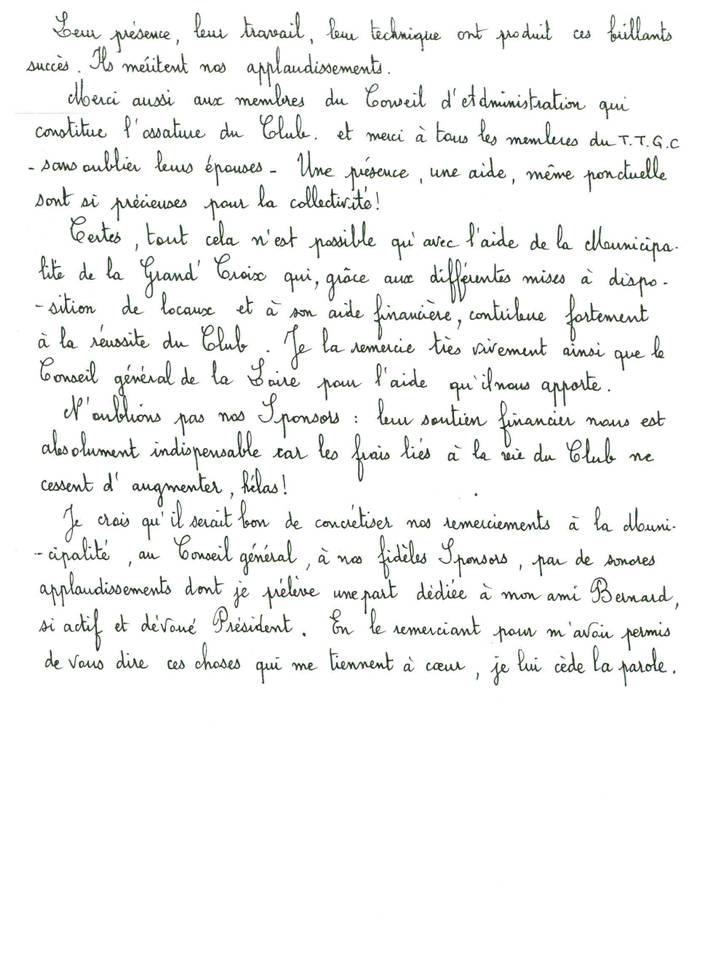 Leur présence, leur travail, leur technique ont produit ces brillants
succès. Ils méritent nos applaudissements.
Merci aussi aux membres du Conseil d'Administration qui
constitue l'ossature du Club. et merci à tous les membres du T.T.G.C
- sans oublier leurs épouses - Une présence, une aide, même ponctuelle
sont si précieuses pour la collectivité!
Certes, tout cela n'est possible qu'avec l'aide de la Municipa-
lité de la Grand' Croix qui, grâce aux différentes mises à dispo-
-sition de locaux et à son aide financière, contribue fortement
à la réussite du Club. Je la remercie très vivement ainsi que le
Conseil général de la Loire pour l'aide qu'il nous apporte.
N'oublions pas nos Sponsors : leur soutien financier nous est
absolument indispensable car les frais liés à la vie du Club ne
cessent d'augmenter, hélas!
Je crois qu'il serait bon de concrétiser nos remerciements à la Muni-
-cipalité, au Conseil général, à nos fidèles Sponsors, par de sonores
applaudissements dont je prélève une part dédiée à mon ami Bernard,
si actif et dévoué Président. En le remerciant pour m'avoir permis
de vous dire ces choses qui me tiennent à cœur, je lui cède la parole.